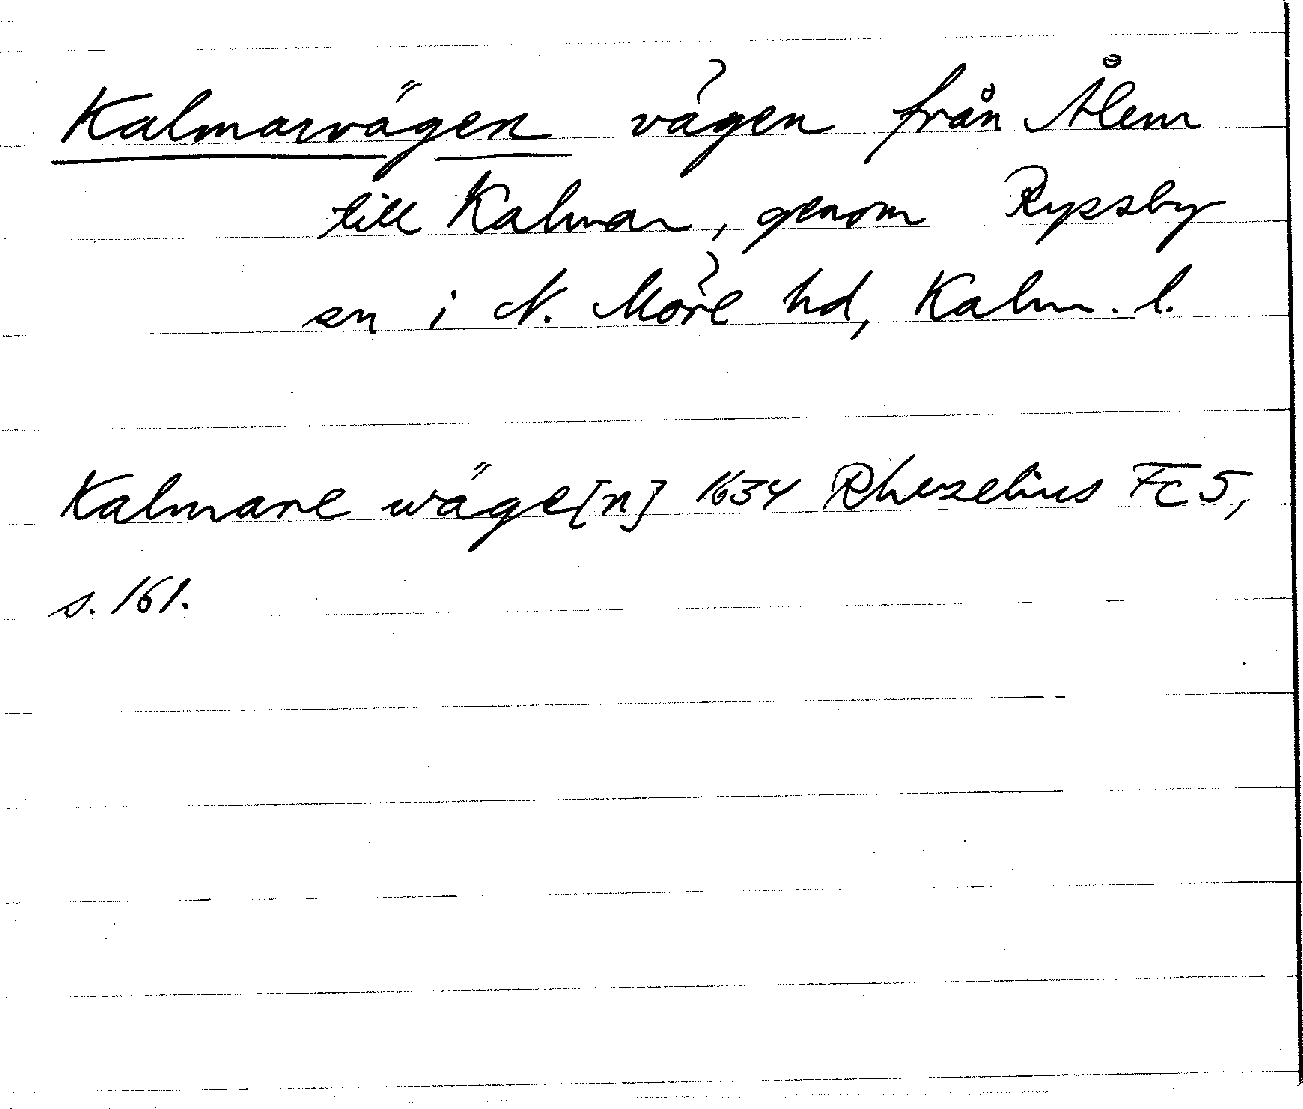 Kalmarvägen vägen från Ålem
till Kalmar, genom Ryssby
sn i N. Möre hd, Kalm. l.
Kalmare wäge[n] 1634 Rhezelius Fc5,
s. 161.